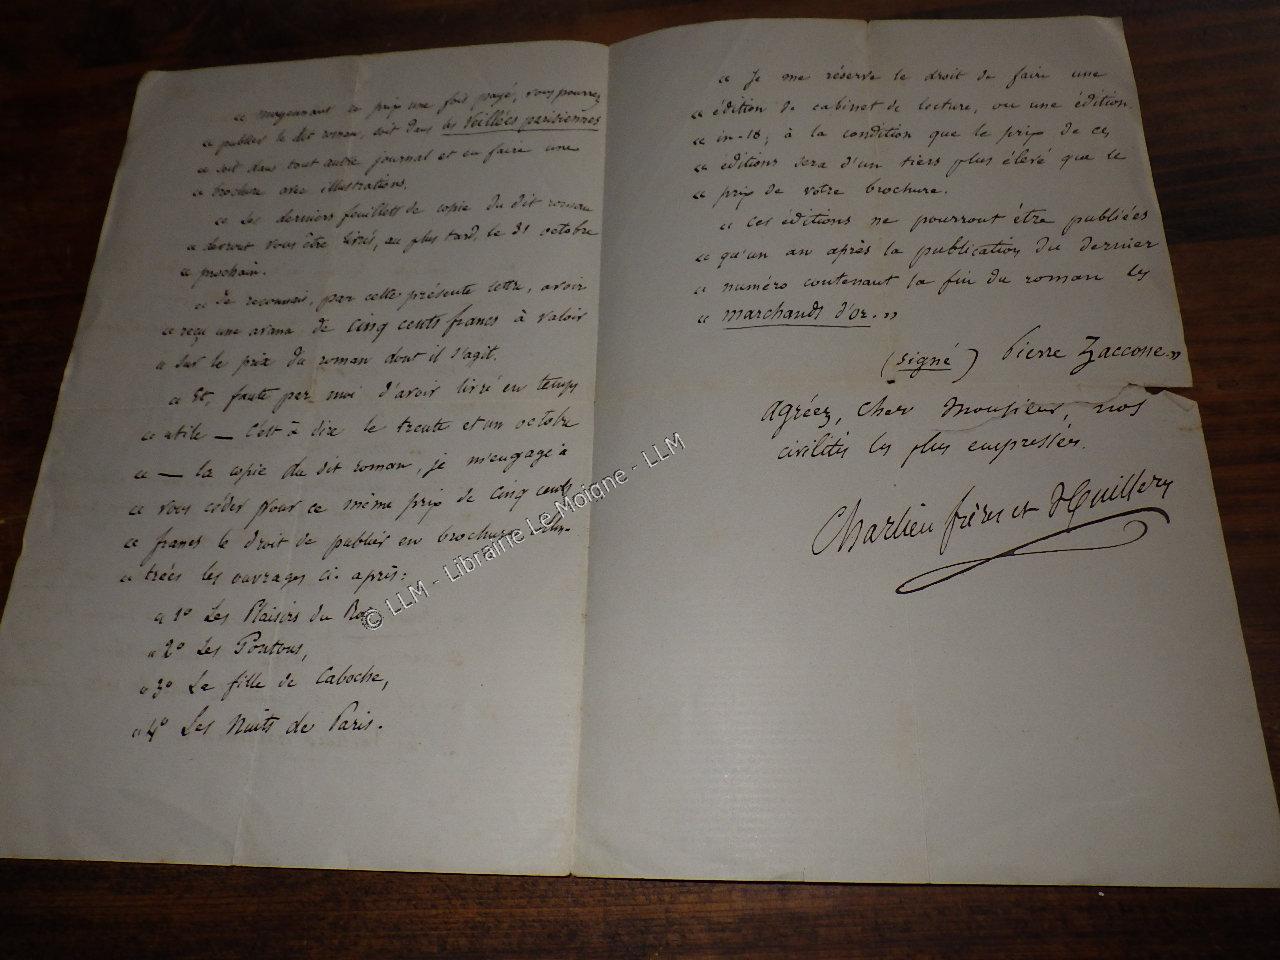 « moyennant ce prix une fois payé, vous pourrez
« publier le dit roman, soit dans les Veillées parisiennes
« soit dans tout autre journal et en faire une
« brochure avec illustrations.
« Les derniers feuillets de copie du dit roman
« devront vous être livrés, au plus tard, le 31 octobre
« prochain.
« Je reconnais, par cette présente lettre, avoir
« reçu une avance de cinq cents francs à valoir
« sur le prix du roman dont il s'agit.
« Et, faute par moi d'avoir livré en temps
« utile — c'est à dire le trente et un octobre
« — la copie du dit roman, je m'engage à
« vous céder pour ce même prix de cinq cents
« francs le droit de publier en brochures illus-
« trées les ouvrages ci-après:
« 1° Les Plaisirs du Roi,
« 2° Les Pontons,
« 3° La fille de Caboche,
« 4° Les Nuits de Paris.
« Je me réserve le droit de faire une
« édition de cabinet de lecture, ou une édition
« in-18, à la condition que le prix de ces
« éditions sera d'un tiers plus élevé que le
« prix de votre brochure.
« Ces éditions ne pourront être publiées
« qu'un an après la publication du dernier
« numéro contenant la fin du roman les
« marchands d'or. »
(signé) Pierre Zaccone »
agréez, cher Monsieur, nos
civilités les plus empressées.
Charlieu frères et Huillery
© LLM - Librairie Le Moigne - LLM